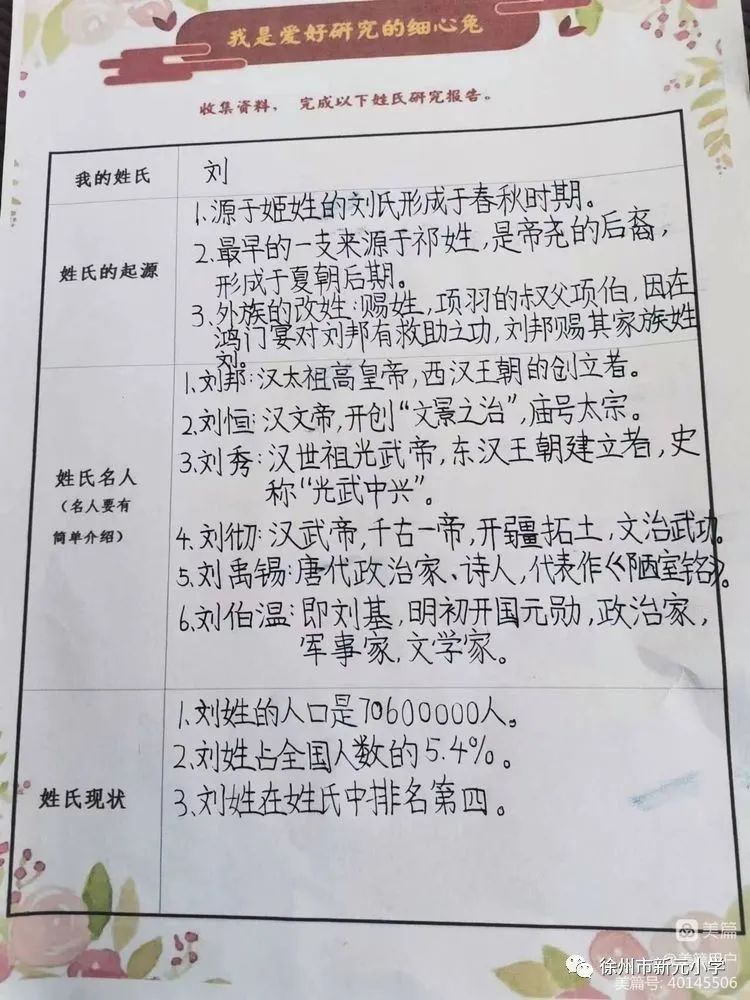 我是爱好研究的细心兔
收集资料， 完成以下姓氏研究报告。
我的姓氏
刘
姓氏的起源
1.源于姬姓的刘氏形成于春秋时期。
2.最早的一支来源于祁姓，是帝尧的后裔，
形成于夏朝后期。
3.外族的改姓：赐姓，项羽的叔父项伯，因在
鸿门宴对刘邦有救助之功，刘邦赐其家族姓
刘。
姓氏名人
（名人要有
简单介绍）
1.刘邦：汉太祖高皇帝，西汉王朝的创立者。
2.刘恒：汉文帝，开创“文景之治”，庙号太宗。
3.刘秀：汉世祖光武帝，东汉王朝建立者，史
称“光武中兴”。
4.刘彻：汉武帝，千古一帝，开疆拓土，文治武功。
5.刘禹锡：唐代政治家、诗人，代表作《陋室铭》。
6.刘伯温：即刘基，明初开国元勋，政治家，
军事家，文学家。
姓氏现状
1.刘姓的人口是70600000人。
2.刘姓占全国人数的5.4%。
3.刘姓在姓氏中排名第四。
美篇
@美篇用户
徐州市新元小学
美篇号: 40145506